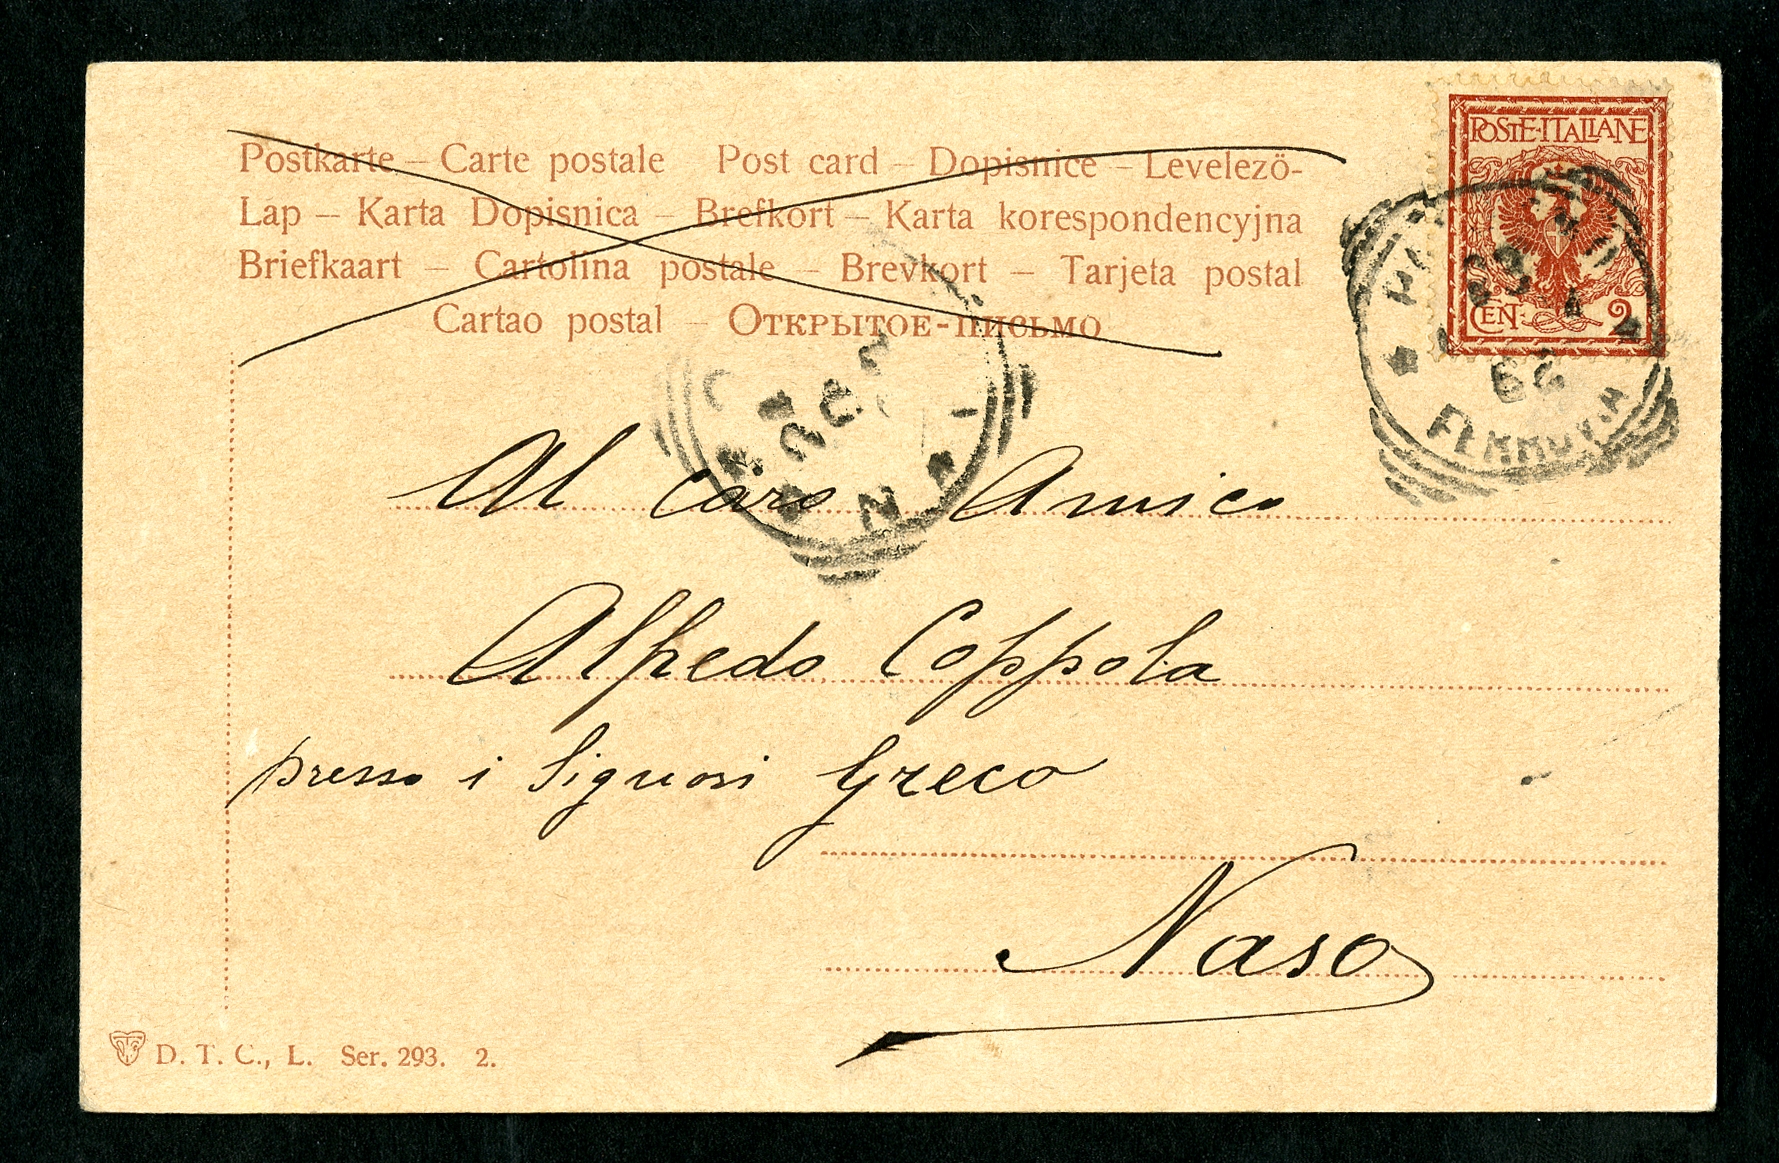 Postkarte – Carte postale Post card – Dopisnice – Levelező-
Lap – Karta Dopisnica – Brefkort – Karta korespondencyjna
Briefkaart – Cartolina postale – Brevkort – Tarjeta postal
Cartao postal – Открытое-письмо
POSTE·ITALIANE
CEN: 2
FERROVIA
Al caro Amico
Alfredo Coppola
presso i Signori Greco
Naso
D. T. C., L. Ser. 293. 2.